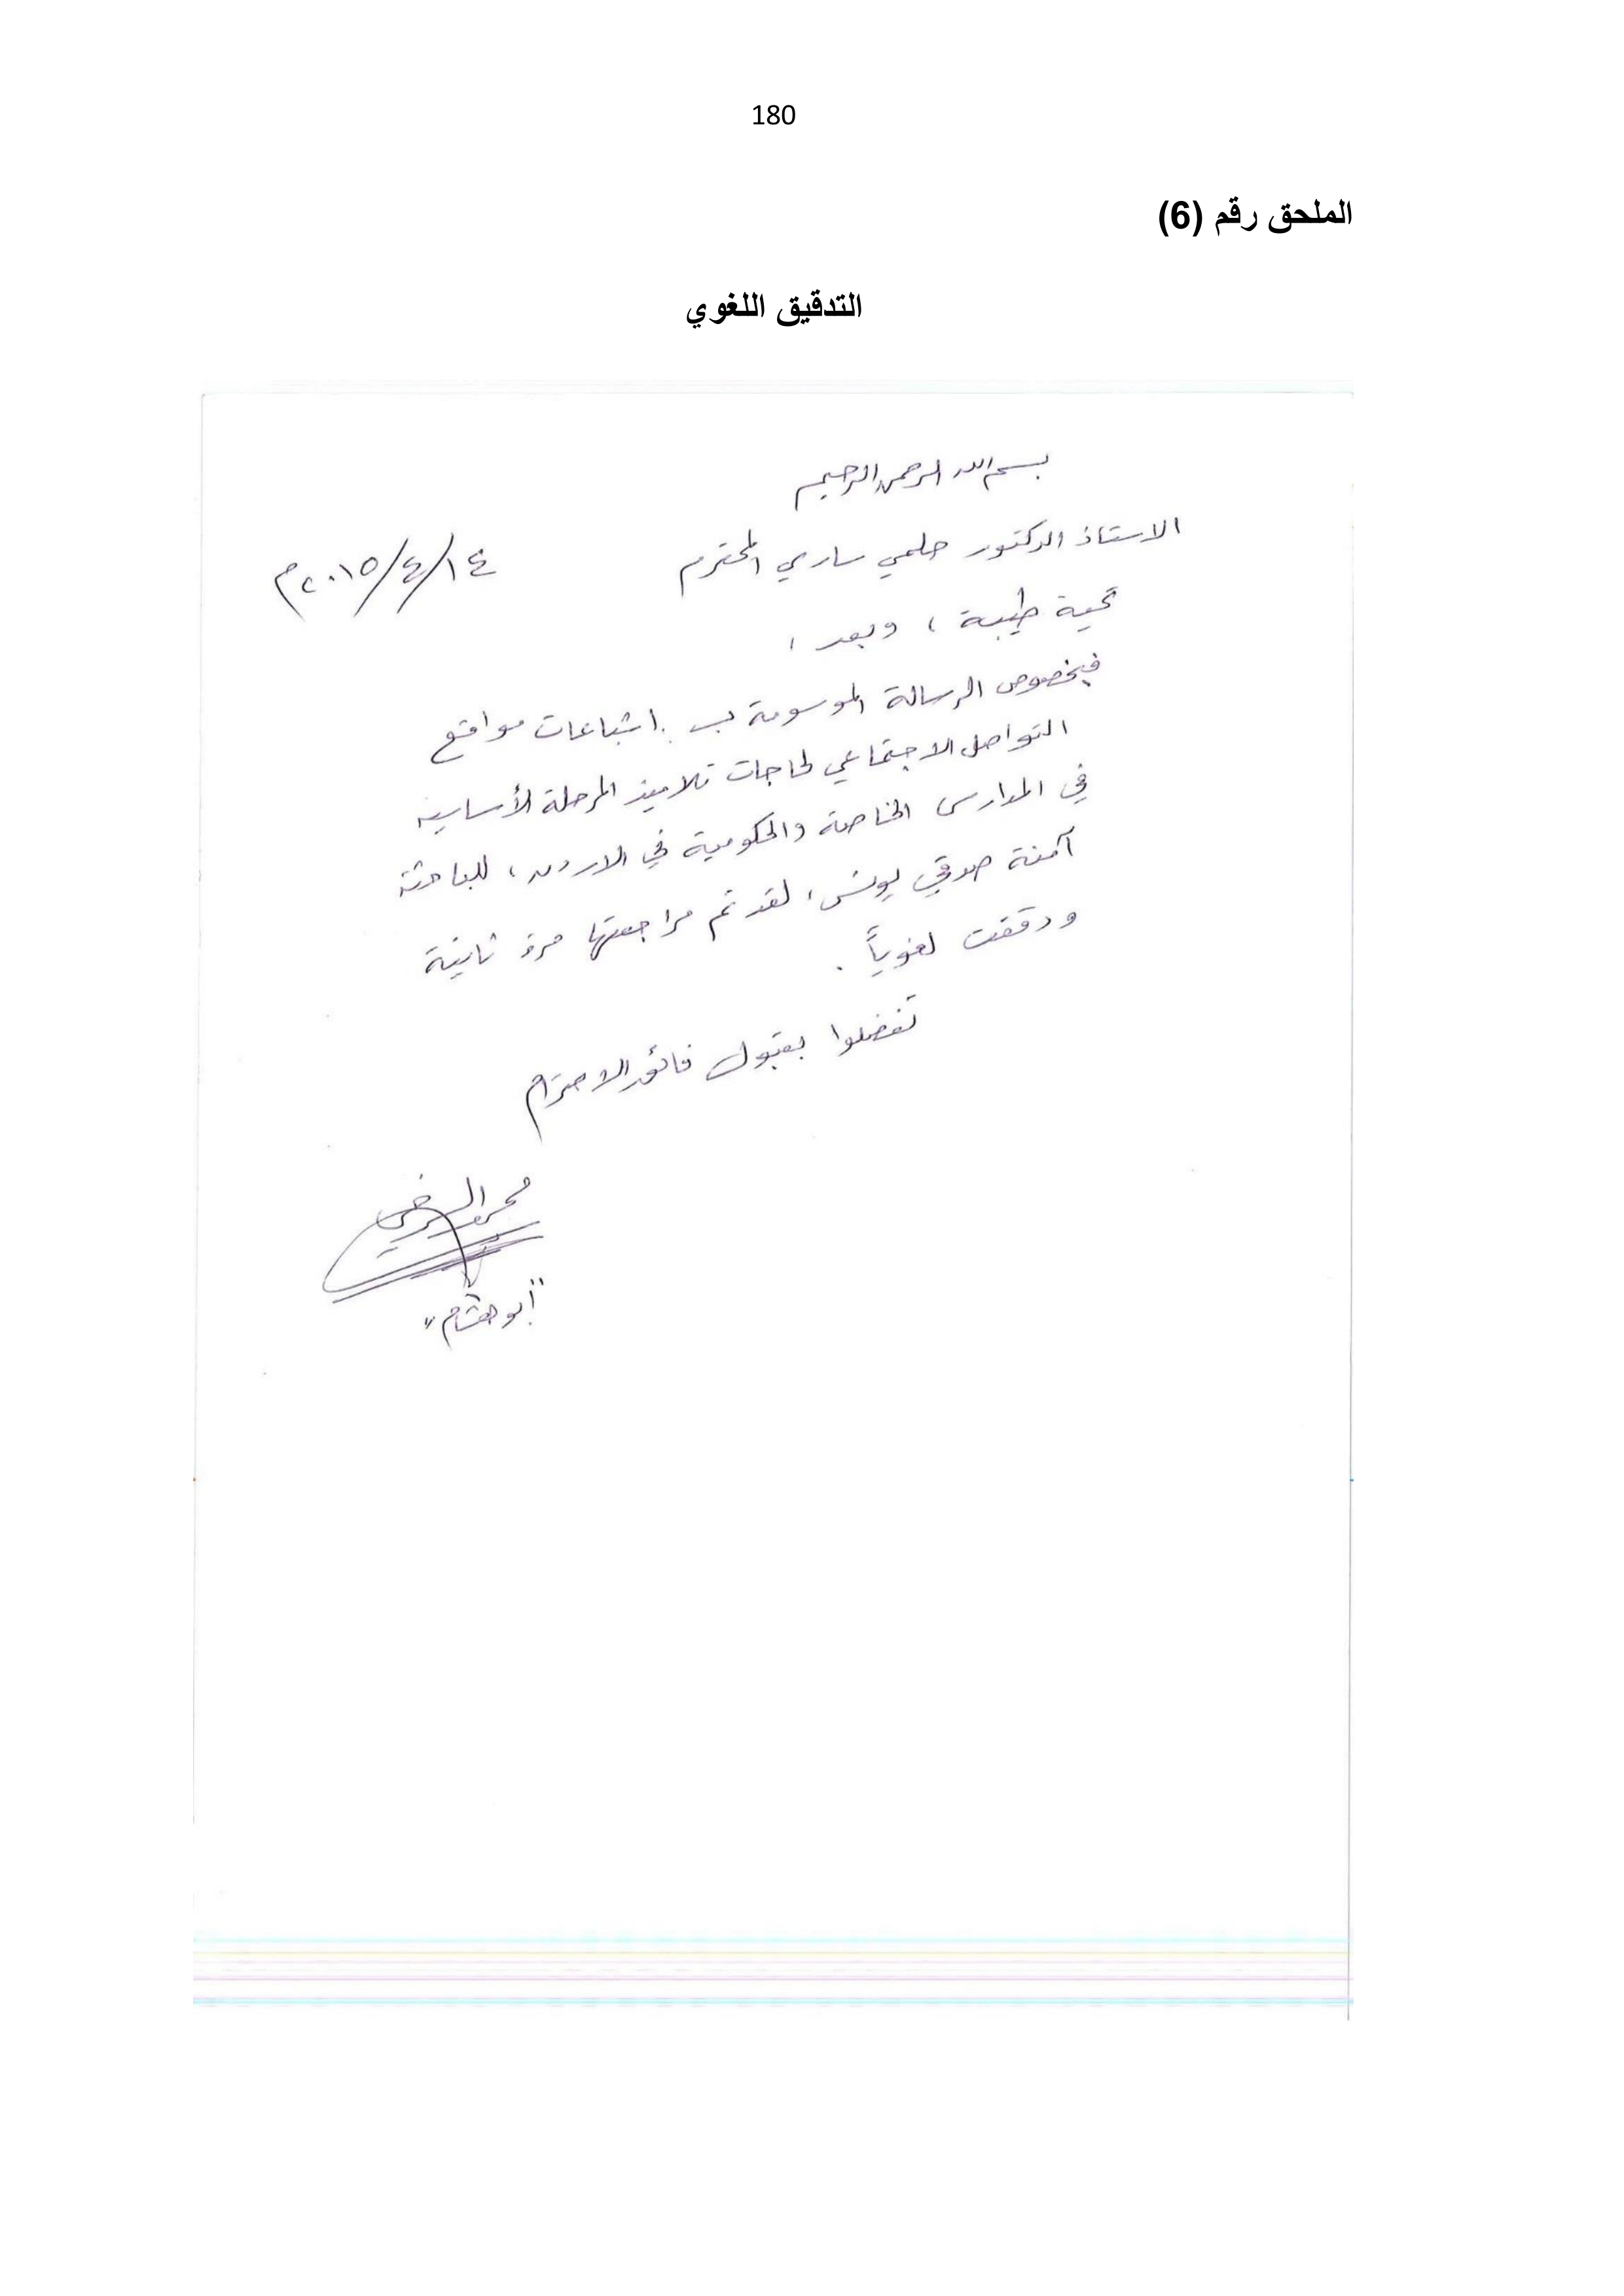 180
الملحق رقم (6)
التدقيق اللغوي
بسم الله الرحمن الرحيم
الاستاذ الدكتور حلمي ساري المحترم
١٤/٤/٢٠١٥م
تحية طيبة ، وبعد ،
فبخصوص الرسالة الموسومة بـ اشباعات مواقع
التواصل الاجتماعي لحاجات تلاميذ المرحلة الأساسية
في المدارس الخاصة والحكومية في الاردن ، للباحثة
آمنة صدقي يونس ، لقد تم مراجعتها مرة ثانية
ودققت لغوياً .
تفضلوا بقبول فائق الاحترام
"أبو هشام"